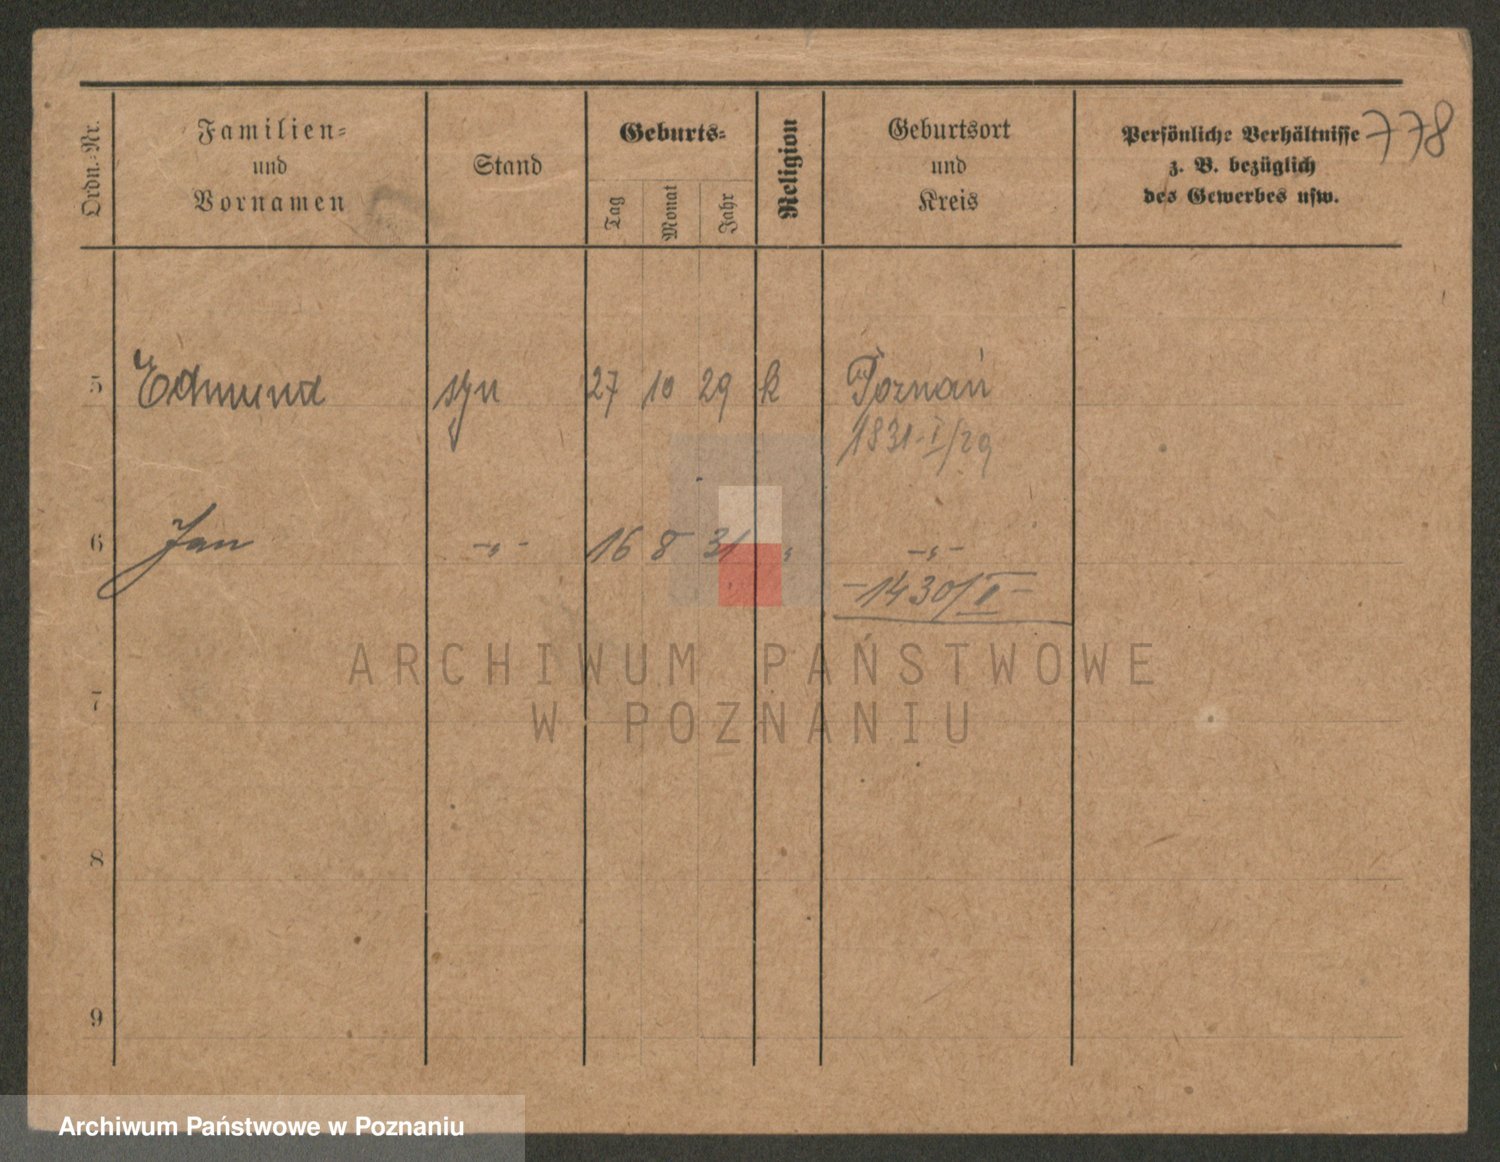 778
Ordn.-Nr.
Familien-
und
Vornamen
Stand
Geburts-
Tag
Monat
Jahr
Religion
Geburtsort
und
Kreis
Persönliche Verhältnisse
z. B. bezüglich
des Gewerbes usw.
5 Edmund syn 27 10 29 k Poznań
1831-I/29
6 Jan -„- 16 8 31 „ -„-
-1430/II-
7
8
9
ARCHIWUM PAŃSTWOWE
W POZNANIU
Archiwum Państwowe w Poznaniu